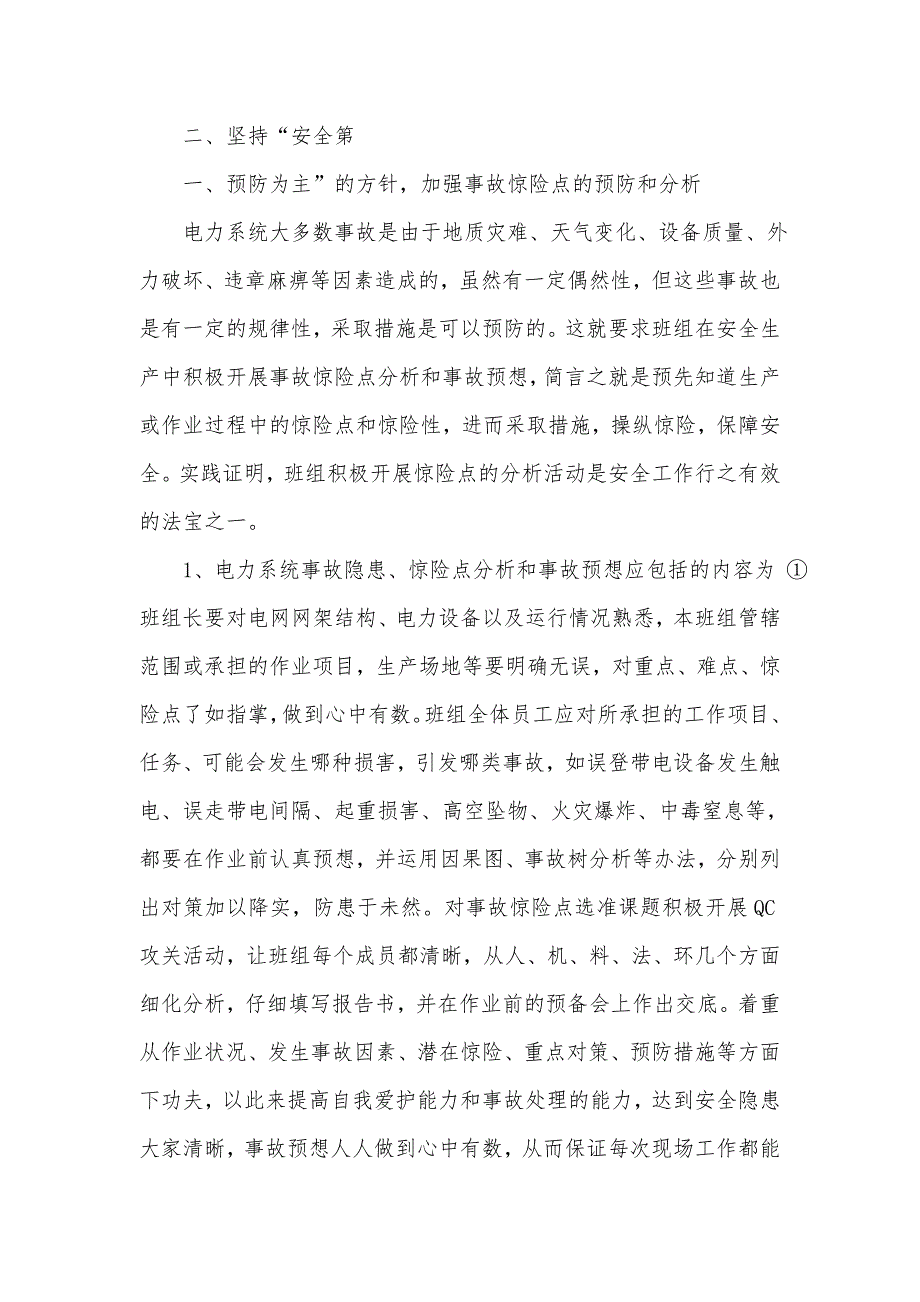 二、坚持“安全第
一、预防为主”的方针，加强事故惊险点的预防和分析
电力系统大多数事故是由于地质灾难、天气变化、设备质量、外
力破坏、违章麻痹等因素造成的，虽然有一定偶然性，但这些事故也
是有一定的规律性，采取措施是可以预防的。这就要求班组在安全生
产中积极开展事故惊险点分析和事故预想，简言之就是预先知道生产
或作业过程中的惊险点和惊险性，进而采取措施，操纵惊险，保障安
全。实践证明，班组积极开展惊险点的分析活动是安全工作行之有效
的法宝之一。
1、电力系统事故隐患、惊险点分析和事故预想应包括的内容为 ①
班组长要对电网网架结构、电力设备以及运行情况熟悉，本班组管辖
范围或承担的作业项目，生产场地等要明确无误，对重点、难点、惊
险点了如指掌，做到心中有数。班组全体员工应对所承担的工作项目、
任务、可能会发生哪种损害，引发哪类事故，如误登带电设备发生触
电、误走带电间隔、起重损害、高空坠物、火灾爆炸、中毒窒息等，
都要在作业前认真预想，并运用因果图、事故树分析等办法，分别列
出对策加以降实，防患于未然。对事故惊险点选准课题积极开展 QC
攻关活动，让班组每个成员都清晰，从人、机、料、法、环几个方面
细化分析，仔细填写报告书，并在作业前的预备会上作出交底。着重
从作业状况、发生事故因素、潜在惊险、重点对策、预防措施等方面
下功夫，以此来提高自我爱护能力和事故处理的能力，达到安全隐患
大家清晰，事故预想人人做到心中有数，从而保证每次现场工作都能